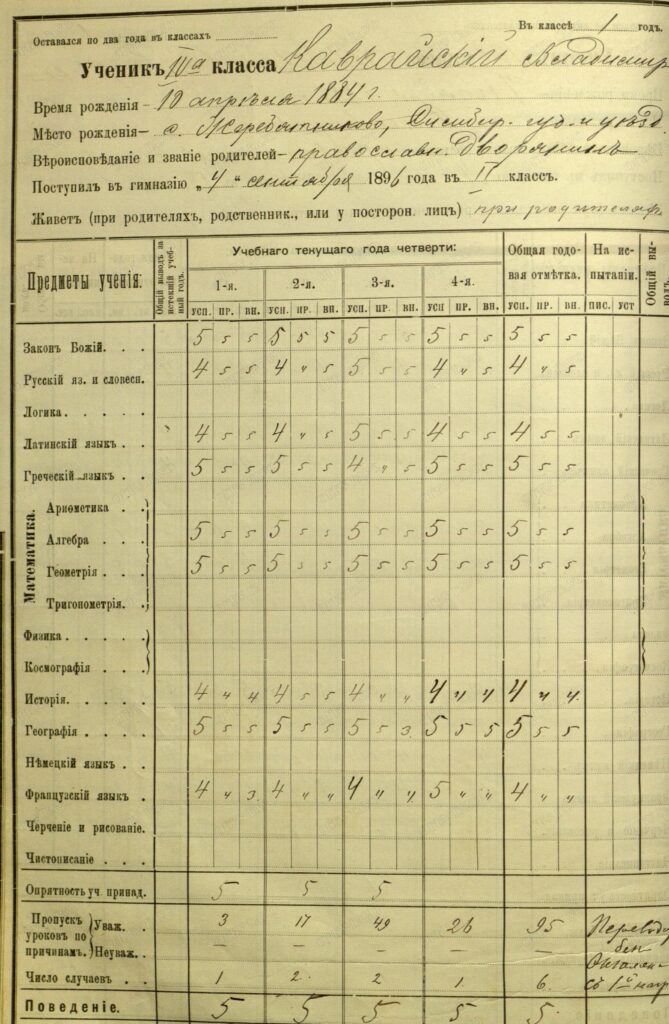 Оставался по два года въ классахъ
Въ классѣ 1 годъ.
Ученикъ IVа класса Каврайскій Владимир
Время рожденія – 10 апрѣля 1884 г.
Мѣсто рожденія – с. Жеребятниково, Симбир. губ. и уѣзд
Вѣроисповѣданіе и званіе родителей – православн. Дворянинъ
Поступилъ въ гимназію „4" сентября 1896 года въ II классъ.
Живетъ (при родителяхъ, родственник., или у посторон. лицъ) при родителях
Предметы ученія:
Общій выводъ за истекшій учебный годъ.
Учебнаго текущаго года четверти:
Общая годовая отмѣтка.
На испытаніи.
Общій выводъ.
1-я. 2-я. 3-я. 4-я.
усп. пр. вн. усп. пр. вн. усп. пр. вн. усп. пр. вн. усп. пр. вн. пис. уст
Законъ Божій. . . 5 5 5 5 5 5 5 5 5 5 5 5 5 5 5
Русскій яз. и словесн. 4 5 5 4 „ 5 5 5 5 4 „ 5 4 „ 5
Логика. . . . .
Латинскій языкъ . . 4 5 5 4 „ 5 5 5 5 4 5 5 4 5 5
Греческій языкъ . . 5 5 5 5 5 5 4 „ 5 5 5 5 5 5 5
Математика.
Ариѳметика . .
Алгебра . . . 5 5 5 5 5 5 5 5 5 5 5 5 5 5 5
Геометрія . . . 5 5 5 5 5 5 5 5 5 5 5 5 5 5 5
Тригонометрія. .
Физика . . . . .
Космографія . . .
Исторія. . . . . 4 „ 4 4 5 5 4 „ „ 4 „ 4 4 „ 4
Географія . . . . 5 5 5 5 5 5 5 5 3. 5 5 5 5 5 5
Нѣмецкій языкъ . .
Французскій языкъ . 4 „ 3. 4 „ „ 4 „ „ 5 „ „ 4 „ „
Черченіе и рисованіе.
Чистописаніе . . .
Опрятность уч. принад. 5 5 5
Пропускъ уроковъ по причинамъ.
Уваж. 3 17 49 26 95
Неуваж. . — — — — —
Число случаевъ . . 1 2. 2 1. 6.
съ 1й наgr
Поведеніе. 5 5 5 5 5.